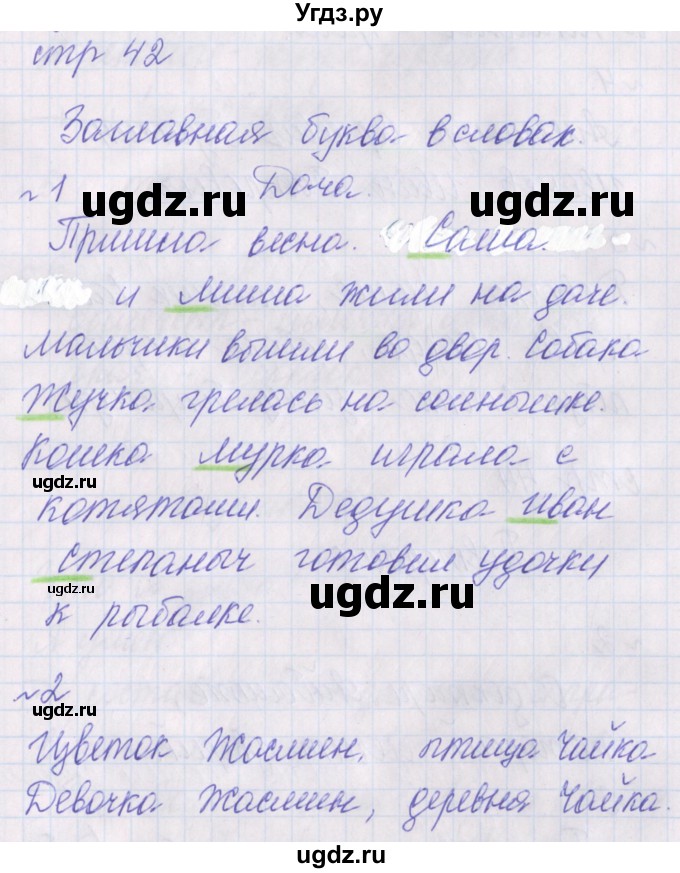 Угдз.ру
стр 42
Заглавная буква в словах.
№1 Дача.
ugdz.ru ugdz.ru
Пришла весна. Саша
и Миша жили на даче.
Мальчики вышли во двор. Собака
Жучка грелась на солнышке.
Кошка Мурка играла с
ugdz.ru
котятами. Дедушка Иван
Степаныч готовил удочки
ugdz.ru ugdz.ru
к рыбалке.
№2
ugdz.ru
Цветок жасмин, птица чайка
Девочка Жасмин, деревня Чайка.
ugdz.ru